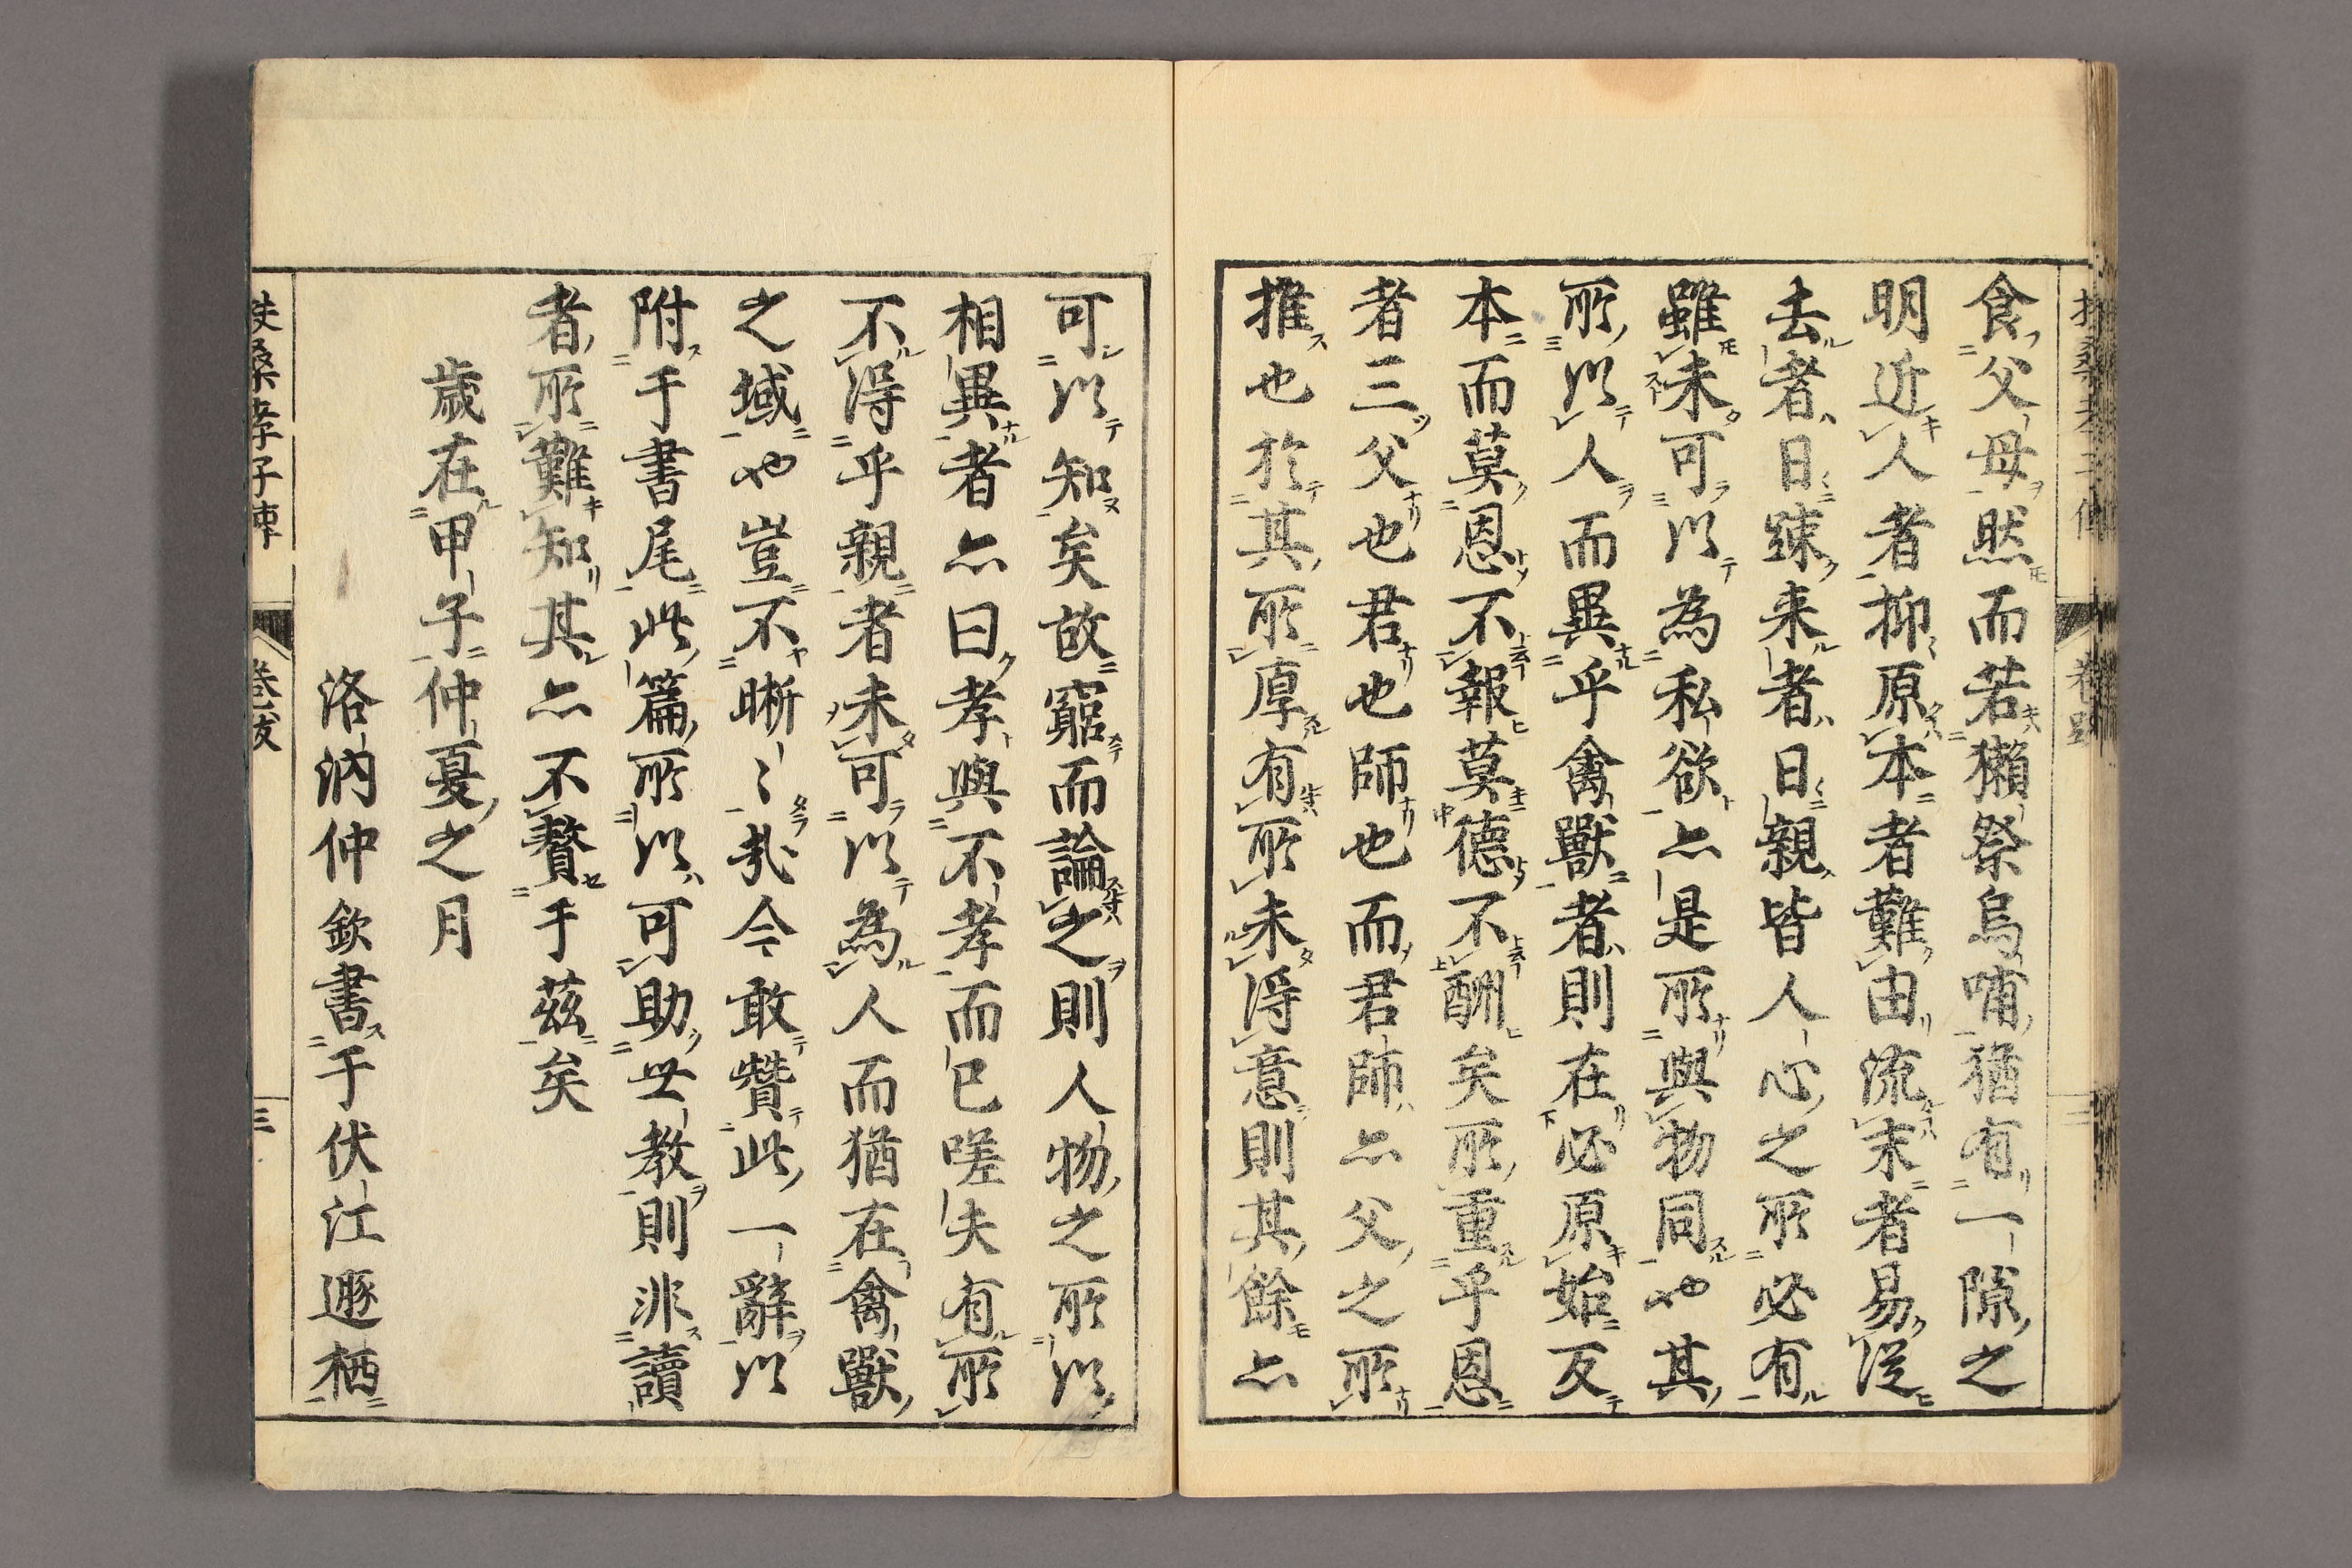 食父母然而若獺祭烏哺猶有一隙之
明近人者抑原本者難由流末者易從
去者日疎来者日親皆人心之所必有
雖未可以為私欲亦是所與物同也其
所以人而異乎禽獸者則在必原始反
本而莫恩不報莫德不酬矣所重乎恩
者三父也君也師也而君師亦父之所
推也於其所厚有所未得意則其餘亦
可以知矣故窮而論之則人物之所以
相異者亦曰孝與不孝而已嗟夫有所
不得乎親者未可以為人而猶在禽獸
之域也豈不晰〻哉今敢贊此一辭以
附于書尾此篇所以可助世教則非讀
者所難知其亦不贅于茲矣
歲在甲子仲夏之月
洛汭仲欽書于伏江遯栖
扶桑孝子傳
卷跋
三